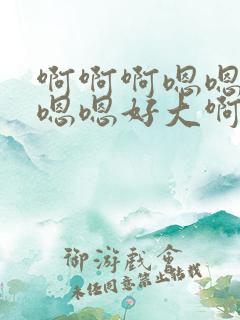 啊啊啊嗯嗯
嗯嗯好大啊
御游戏会
未经同意禁止转载